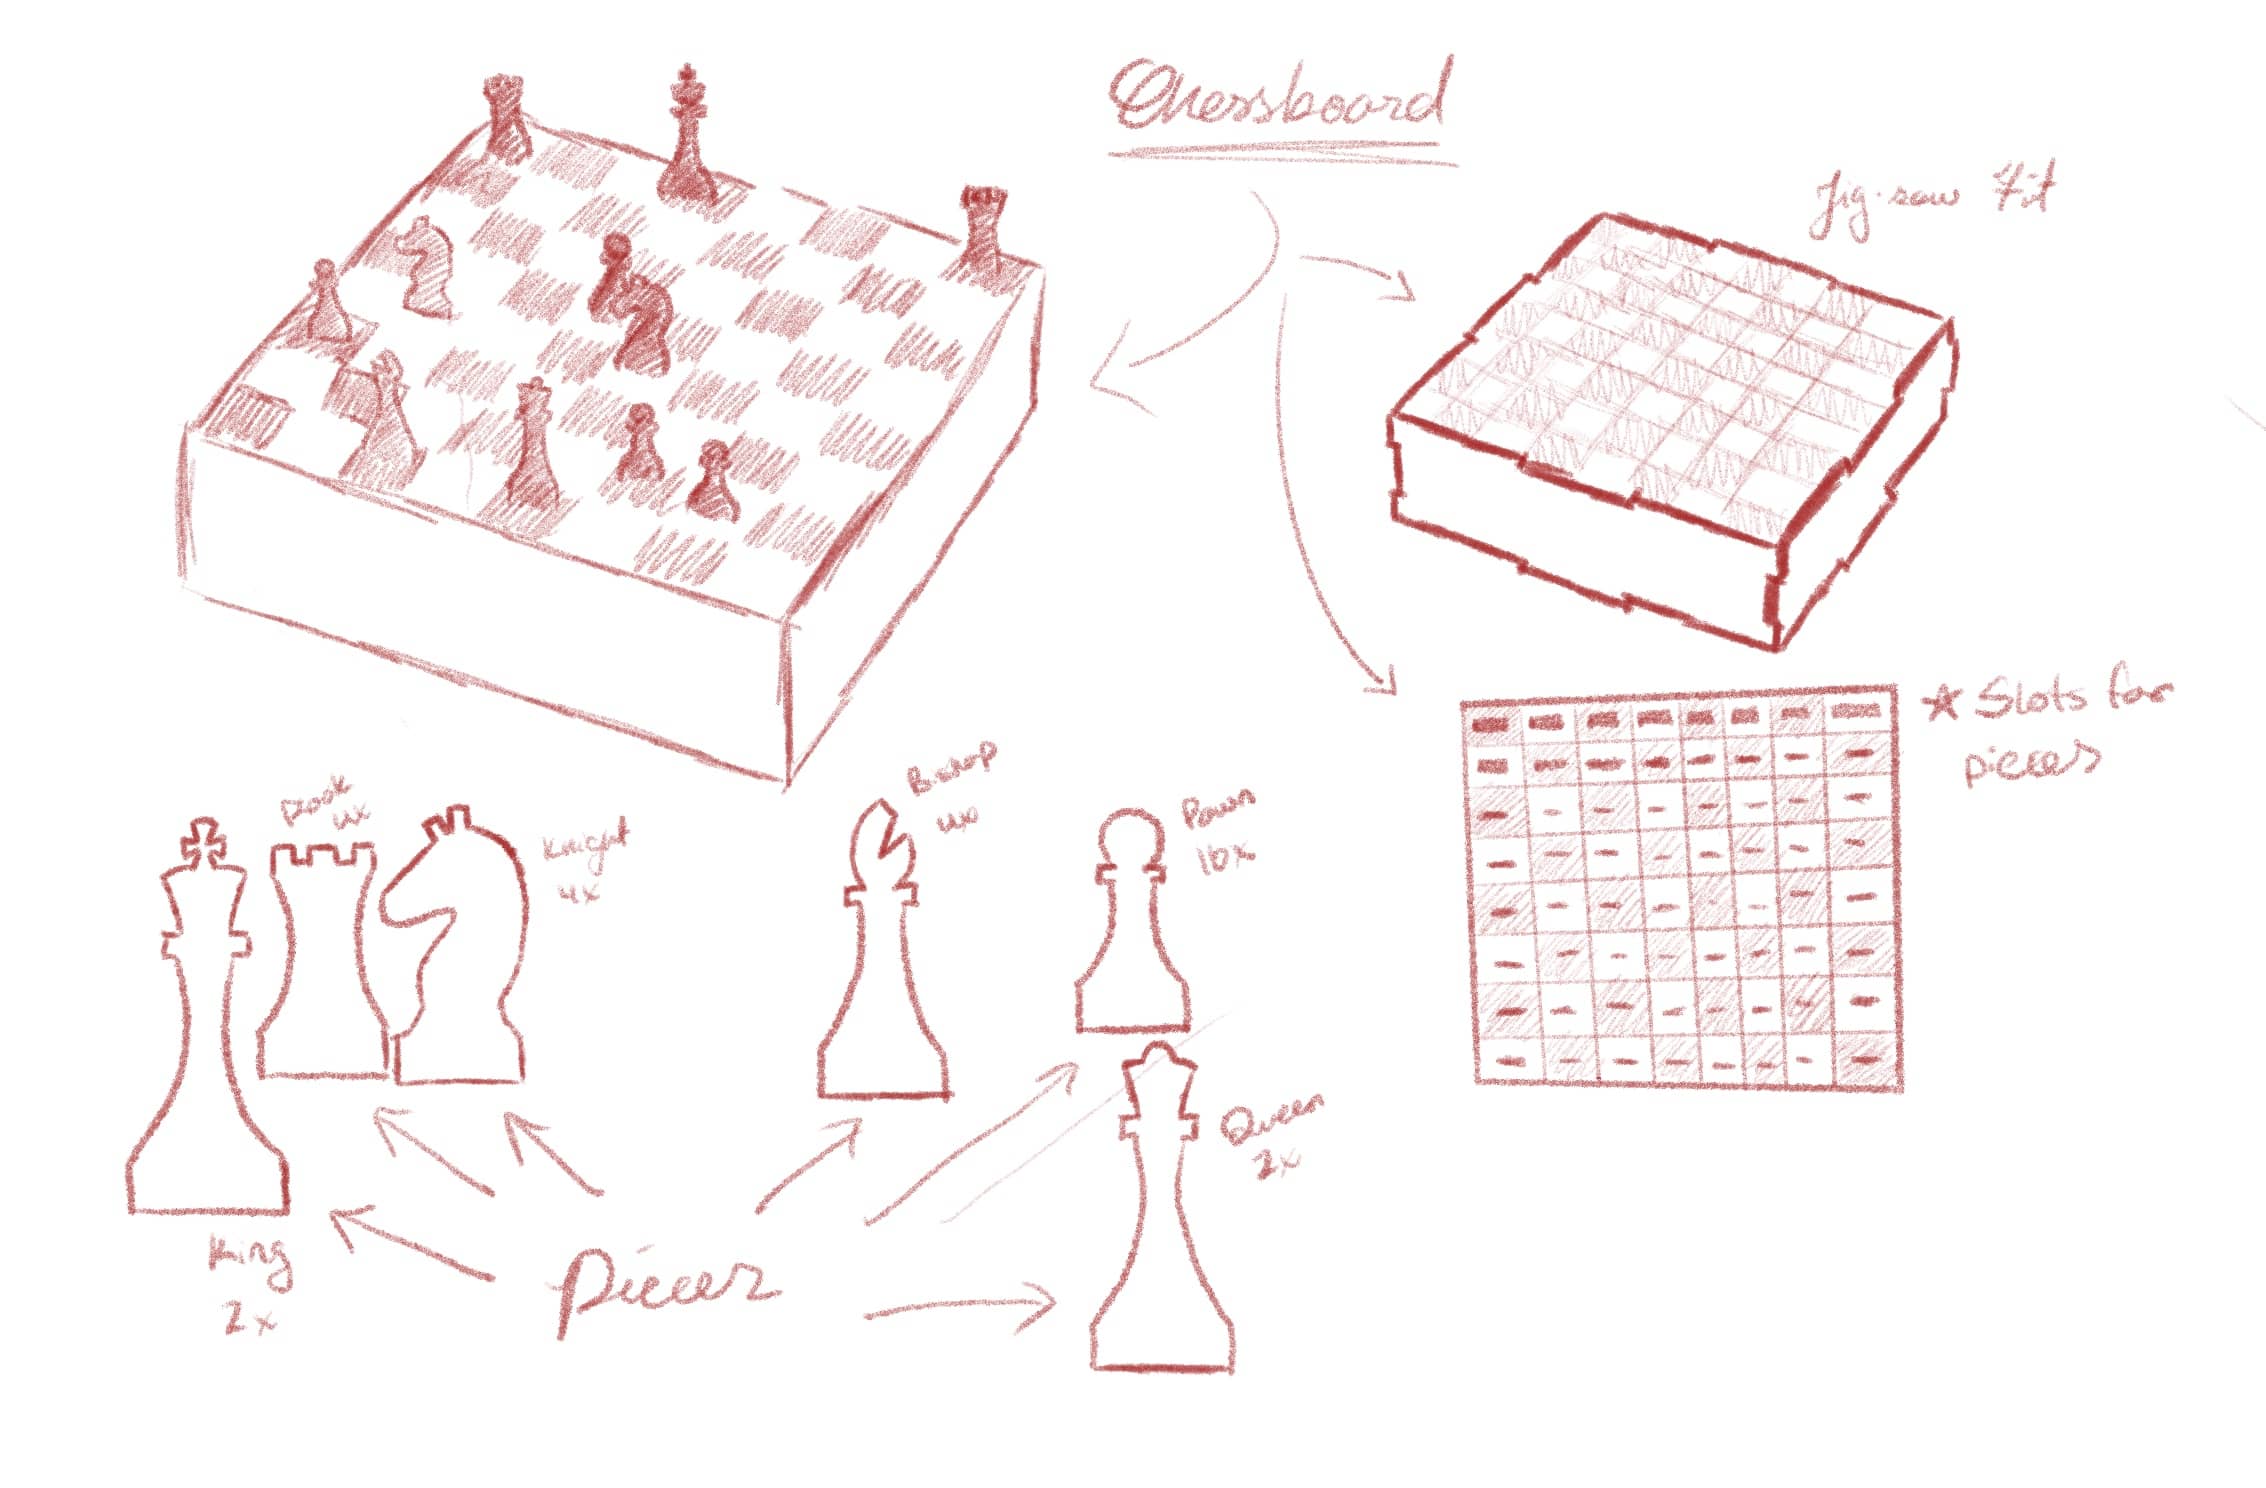 Chessboard
Jig-saw Fit
☆ Slots for
pieces
Rook
4x
Knight
4x
Bishop
4x
Pawn
16x
Queen
2x
King
2x
Pieces